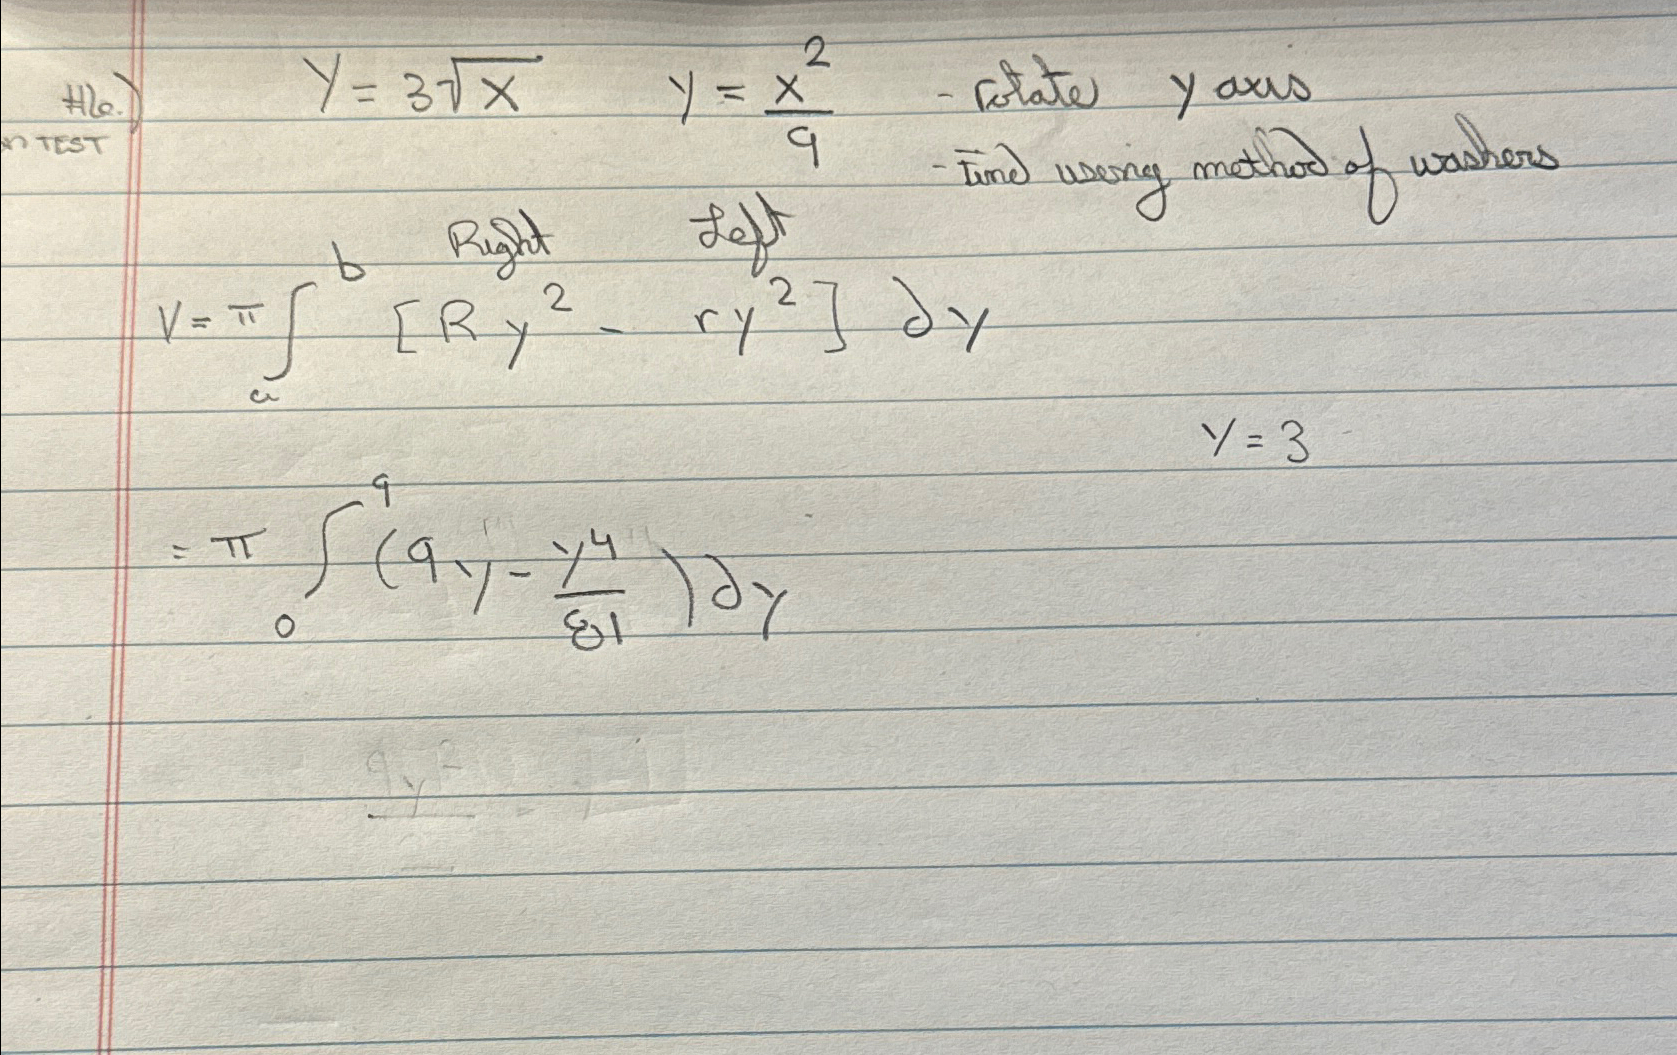 #6.) Y = 3√x y = x²/9 - rotate y axis
on TEST - Find using method of washers
Right Left
V = π ∫_a^b [R y² - r y²] dy
y = 3
= π ∫_0^9 (9y - y⁴/81) dy
9y²